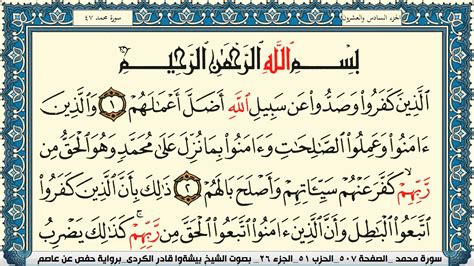 الجزء السادس والعشرون
سورة محمد ٤٧
بِسْمِ اللَّهِ الرَّحْمَٰنِ الرَّحِيمِ
الَّذِينَ كَفَرُوا وَصَدُّوا عَن سَبِيلِ اللَّهِ أَضَلَّ أَعْمَٰلَهُمْ ١ وَالَّذِينَ
ءَامَنُوا وَعَمِلُوا الصَّٰلِحَٰتِ وَءَامَنُوا بِمَا نُزِّلَ عَلَىٰ مُحَمَّدٍ وَهُوَ الْحَقُّ مِن
رَّبِّهِمْ كَفَّرَ عَنْهُمْ سَيِّئَاتِهِمْ وَأَصْلَحَ بَالَهُمْ ٢ ذَٰلِكَ بِأَنَّ الَّذِينَ كَفَرُوا
اتَّبَعُوا الْبَٰطِلَ وَأَنَّ الَّذِينَ ءَامَنُوا اتَّبَعُوا الْحَقَّ مِن رَّبِّهِمْ كَذَٰلِكَ يَضْرِبُ
سورة محمد _ الصفحة ٥٠٧_ الحزب ٥١_ الجزء ٢٦_ بصوت الشيخ بيشةوا قادر الكردي_ برواية حفص عن عاصم